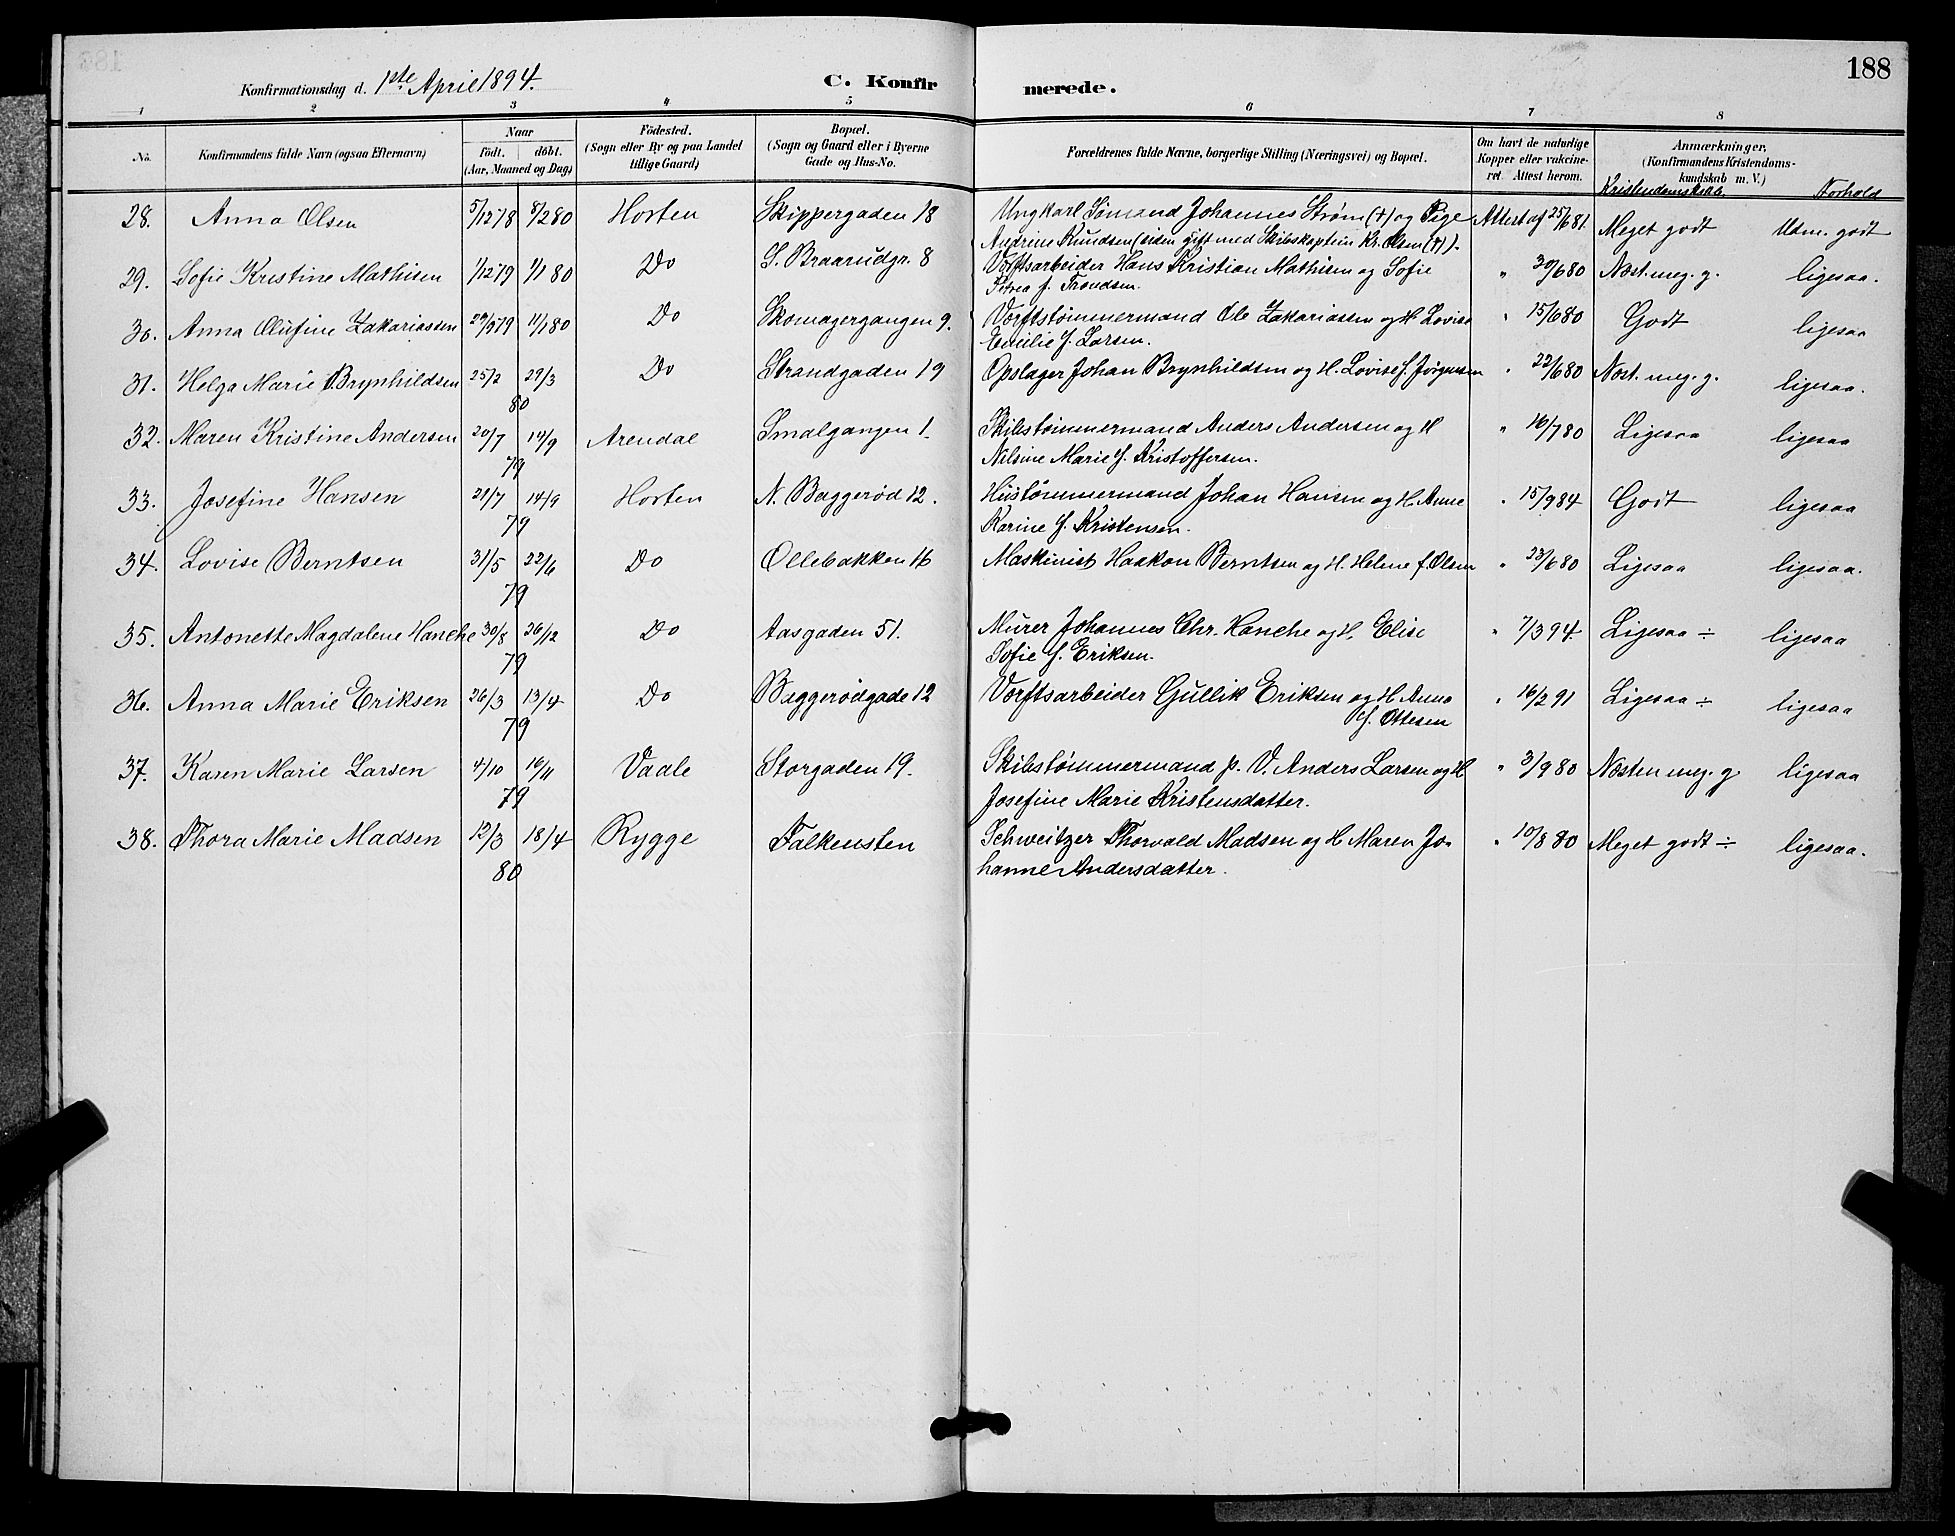 188
Konfirmationsdag d. 1ste April 1894. C. Konfirmerede.
1 2 3 4 5 6 7 8
No. Konfirmandens fulde Navn (ogsaa Efternavn) Naar Födt. döbt. (Aar, Maaned og Dag) Födested. (Sogn eller By og paa Landet tillige Gaard) Bopæl. (Sogn og Gaard eller i Byerne Gade og Hus-No. Forældrenes fulde Navne, borgerlige Stilling (Næringsvei) og Bopæl. Om havt de naturlige Kopper eller vakcineret. Attest herom. Anmærkninger. (Konfirmandens Kristendomskundskab m. V.)
Kristendomsksab. Forhold
28. Anna Olsen 5/12 78 8/2 80 Horten Skippergaden 18 Ungkarl Sømand Johannes Strøm (†) og Pige Attest af 25/6 81. Meget godt Udm. godt
Andrine Knudsen (siden gift med Skibskaptein Kr. Olsen (†)).
29. Sofie Kristine Mathisen 1/12 79 1/1 80 Do S. Braarudgr. 8 Værftsarbeider Hans Kristian Mathisen og Sofie " 30/6 80 Næst. meg. g. ligesaa.
Petrea f. Trondsen.
30. Anna Olufine Zakariassen 29/9 79 11/1 80 Do Skomagergangen 9. Værftstømmermand Ole Zakariassen og H Lovise " 15/6 80 Godt ligesaa
Emilie f. Larsen.
31. Helga Marie Brynhildsen 25/2 29/3 Do Strandgaden 19 Opslager Johan Brynhildsen og H. Lovise f. Jørgensen " 22/6 80 Næst. meg. g. ligesaa.
80
32. Maren Kristine Andersen 20/7 14/9 Arendal Smalgangen 1. Skibstømmermand Anders Andersen og H " 16/7 80 Ligesaa ligesaa
79 Nilsine Marie f. Kristoffersen.
33. Josefine Hansen 21/7 14/9 Horten N. Baggerød 12. Hustømmermand Johan Hansen og H. Anne " 15/9 84 Godt ligesaa
79 Karine f. Kristensen.
34. Lovise Berntsen 31/5 22/6 Do Ollebakken 16 Maskinist Haakon Berntsen og H. Helene f. Olsen " 23/6 80 Ligesaa ligesaa.
79
35. Antonette Magdalene Hanche 30/8 26/12 Do Aasgaden 51. Murer Johannes Chr. Hanche og H. Elise " 7/3 94. Ligesaa ÷ ligesaa
79 Sofie f. Eriksen.
36. Anna Marie Eriksen 26/3 13/4 Do Baggerødgade 12 Værftsarbeider Gullik Eriksen og H Anna " 16/2 91 Ligesaa ÷ ligesaa
79 f. Ottesen
37. Karen Marie Larsen 4/10 16/11 Vaale Storgaden 19. Skibstømmermand p. V. Anders Larsen og H " 3/9 80 Næsten meg. g ligesaa
79 Josefine Marie Kristensdatter.
38. Thora Marie Madsen 12/3 18/4 Rygge Falkensten Schweitzer Thorvald Madsen og H Maren Jo- " 10/8 80 Meget godt ÷ ligesaa.
80 hanne Andersdatter.